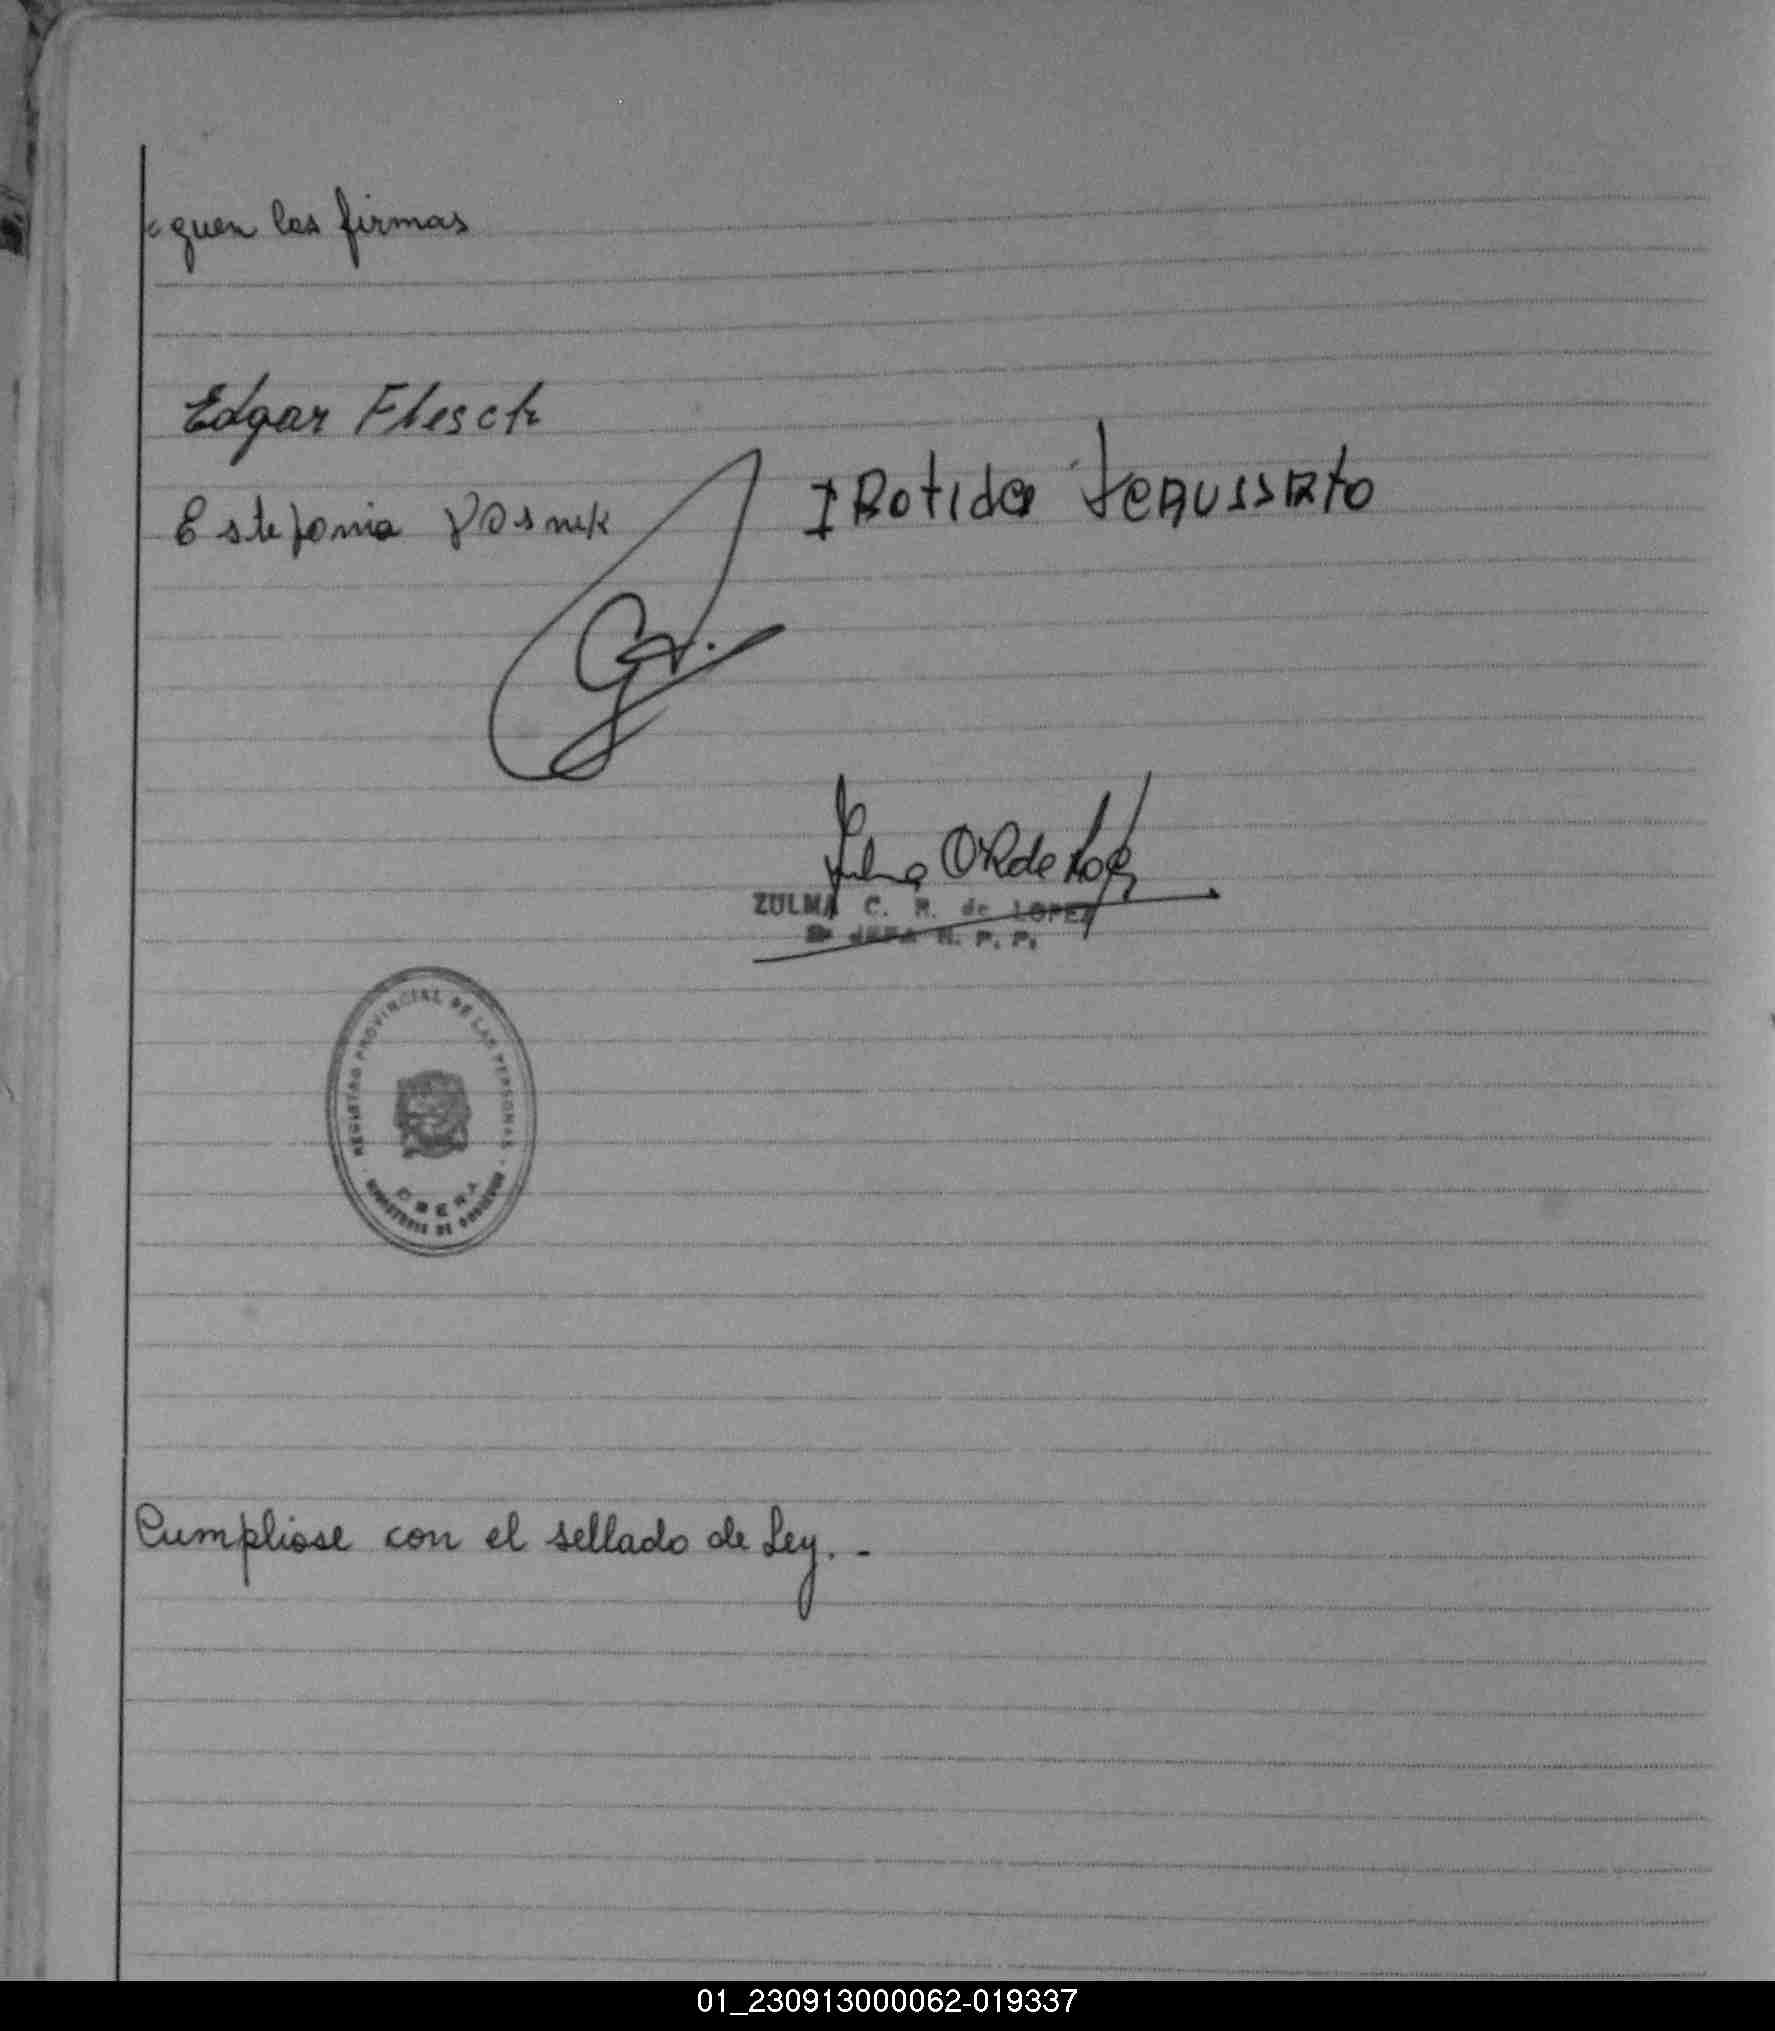 guen las firmas
Edgar Flesch
Estefania
IROtida
Zulma C R de López
ZULMA C. R. de LOPEZ
JEFA R. P. P.
REGISTRO PROVINCIAL DE LAS PERSONAS
OBERA
MINISTERIO DE GOBIERNO
Cumpliose con el sellado de Ley. -
01_230913000062-019337